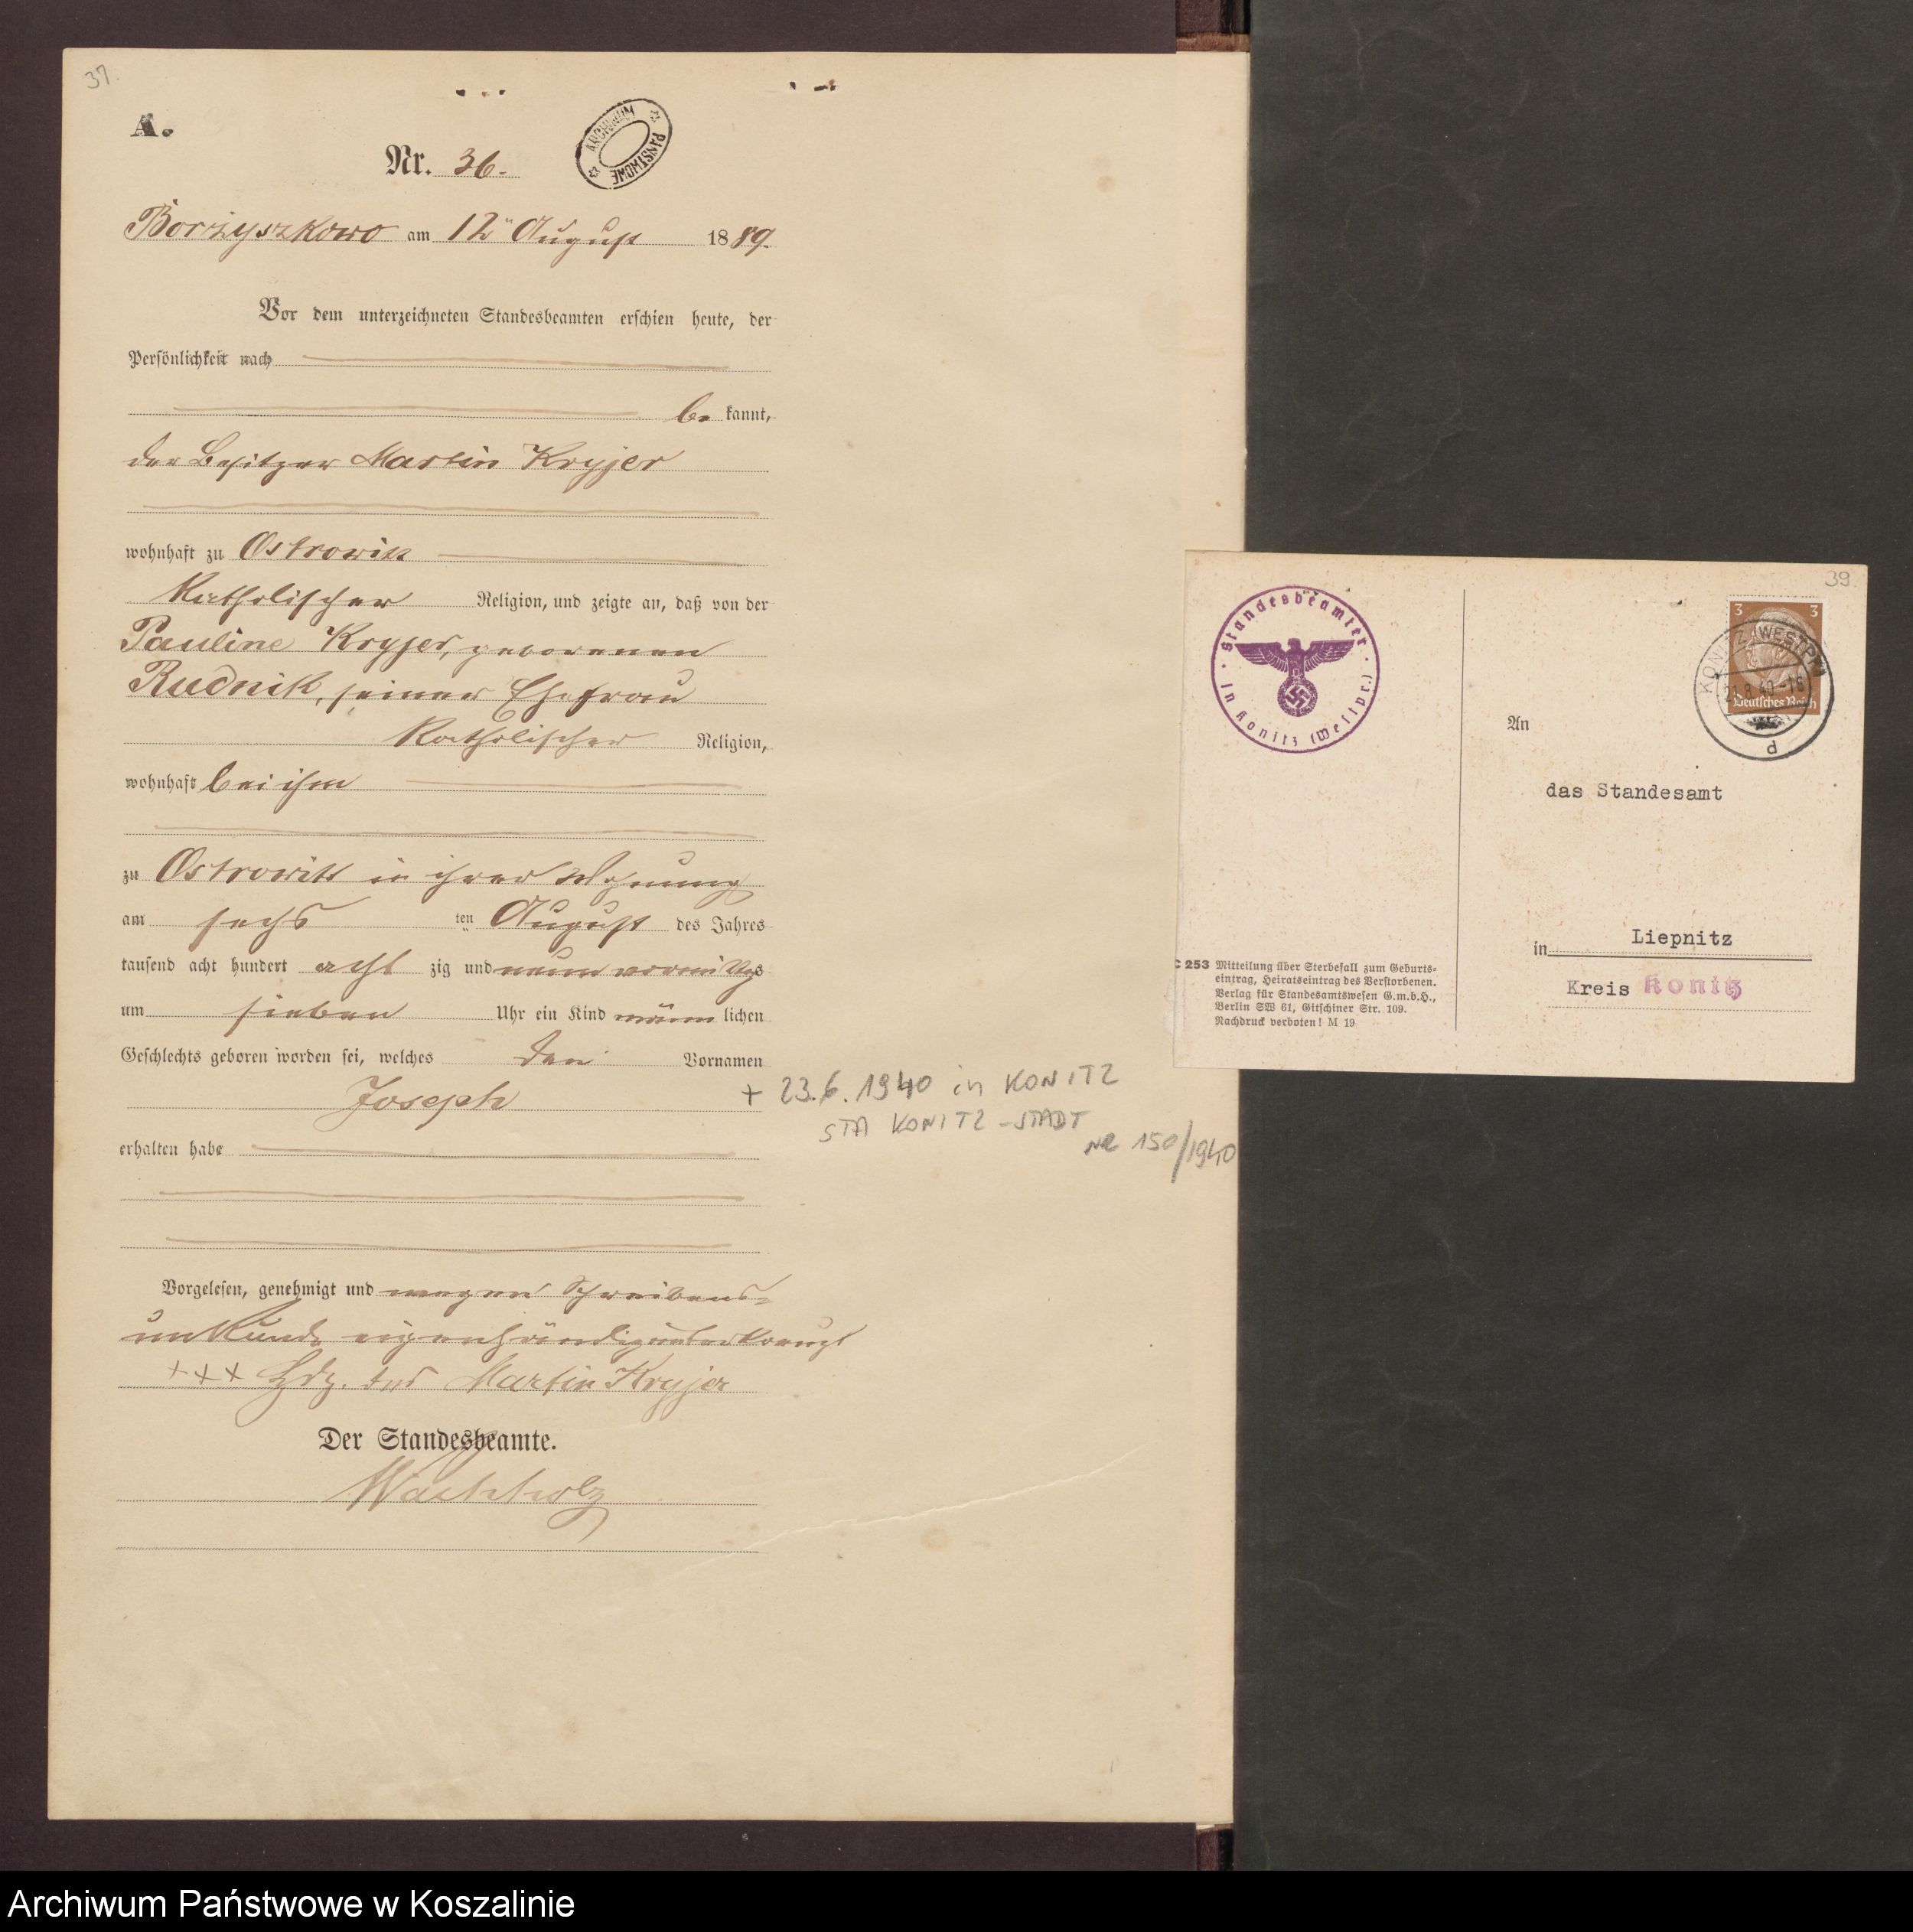 37.
A.
Nr. 36.
ARCHIWUM PAŃSTWOWE
Borzyszkowo am 12ⁿ August 1889.
Vor dem unterzeichneten Standesbeamten erschien heute, der
Persönlichkeit nach
be kannt,
der Besitzer Martin Kryjer
wohnhaft zu Ostrowitt
Katholischer Religion, und zeigte an, daß von der
Pauline Kryjer, geborenen
Rudnik, seiner Ehefrau
Katholischer Religion,
wohnhaft bei ihm
zu Ostrowitt in ihrer Wohnung
am sechs ten August des Jahres
tausend acht hundert acht zig und neun vormittags
um sieben Uhr ein Kind männ lichen
Geschlechts geboren worden sei, welches den Vornamen
Joseph
+ 23.6.1940 in KONITZ
STA KONITZ-STADT
NR 150/1940
erhalten habe
Vorgelesen, genehmigt und wegen Schreibens-
unkunde eigenhändig unterkreuzt
+++ Hdz. des Martin Kryjer
Der Standesbeamte.
Wachholz
39
Standesbeamter in Konitz (Westpr.)
3 3
Deutsches Reich
KONITZ (WESTPR)
.8.40-18
d
An
das Standesamt
in Liepnitz
Kreis Konitz
C 253 Mitteilung über Sterbefall zum Geburts-
eintrag, Heiratseintrag des Verstorbenen.
Verlag für Standesamtswesen G.m.b.H.,
Berlin SW 61, Gitschiner Str. 109.
Nachdruck verboten! M 19
Archiwum Państwowe w Koszalinie